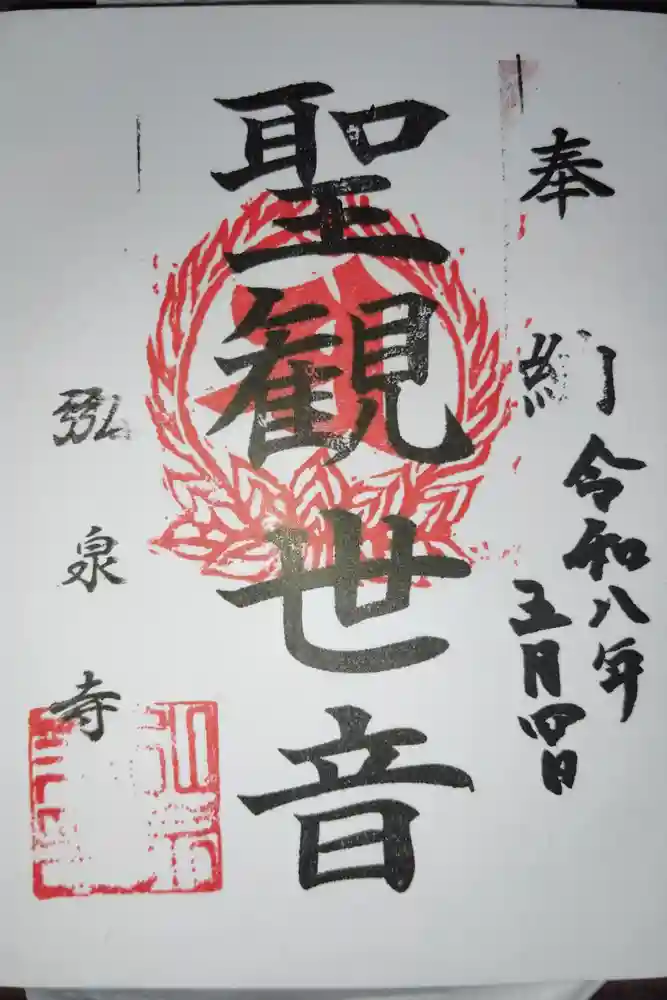 奉納
令和八年
五月四日
聖観世音
弘泉寺